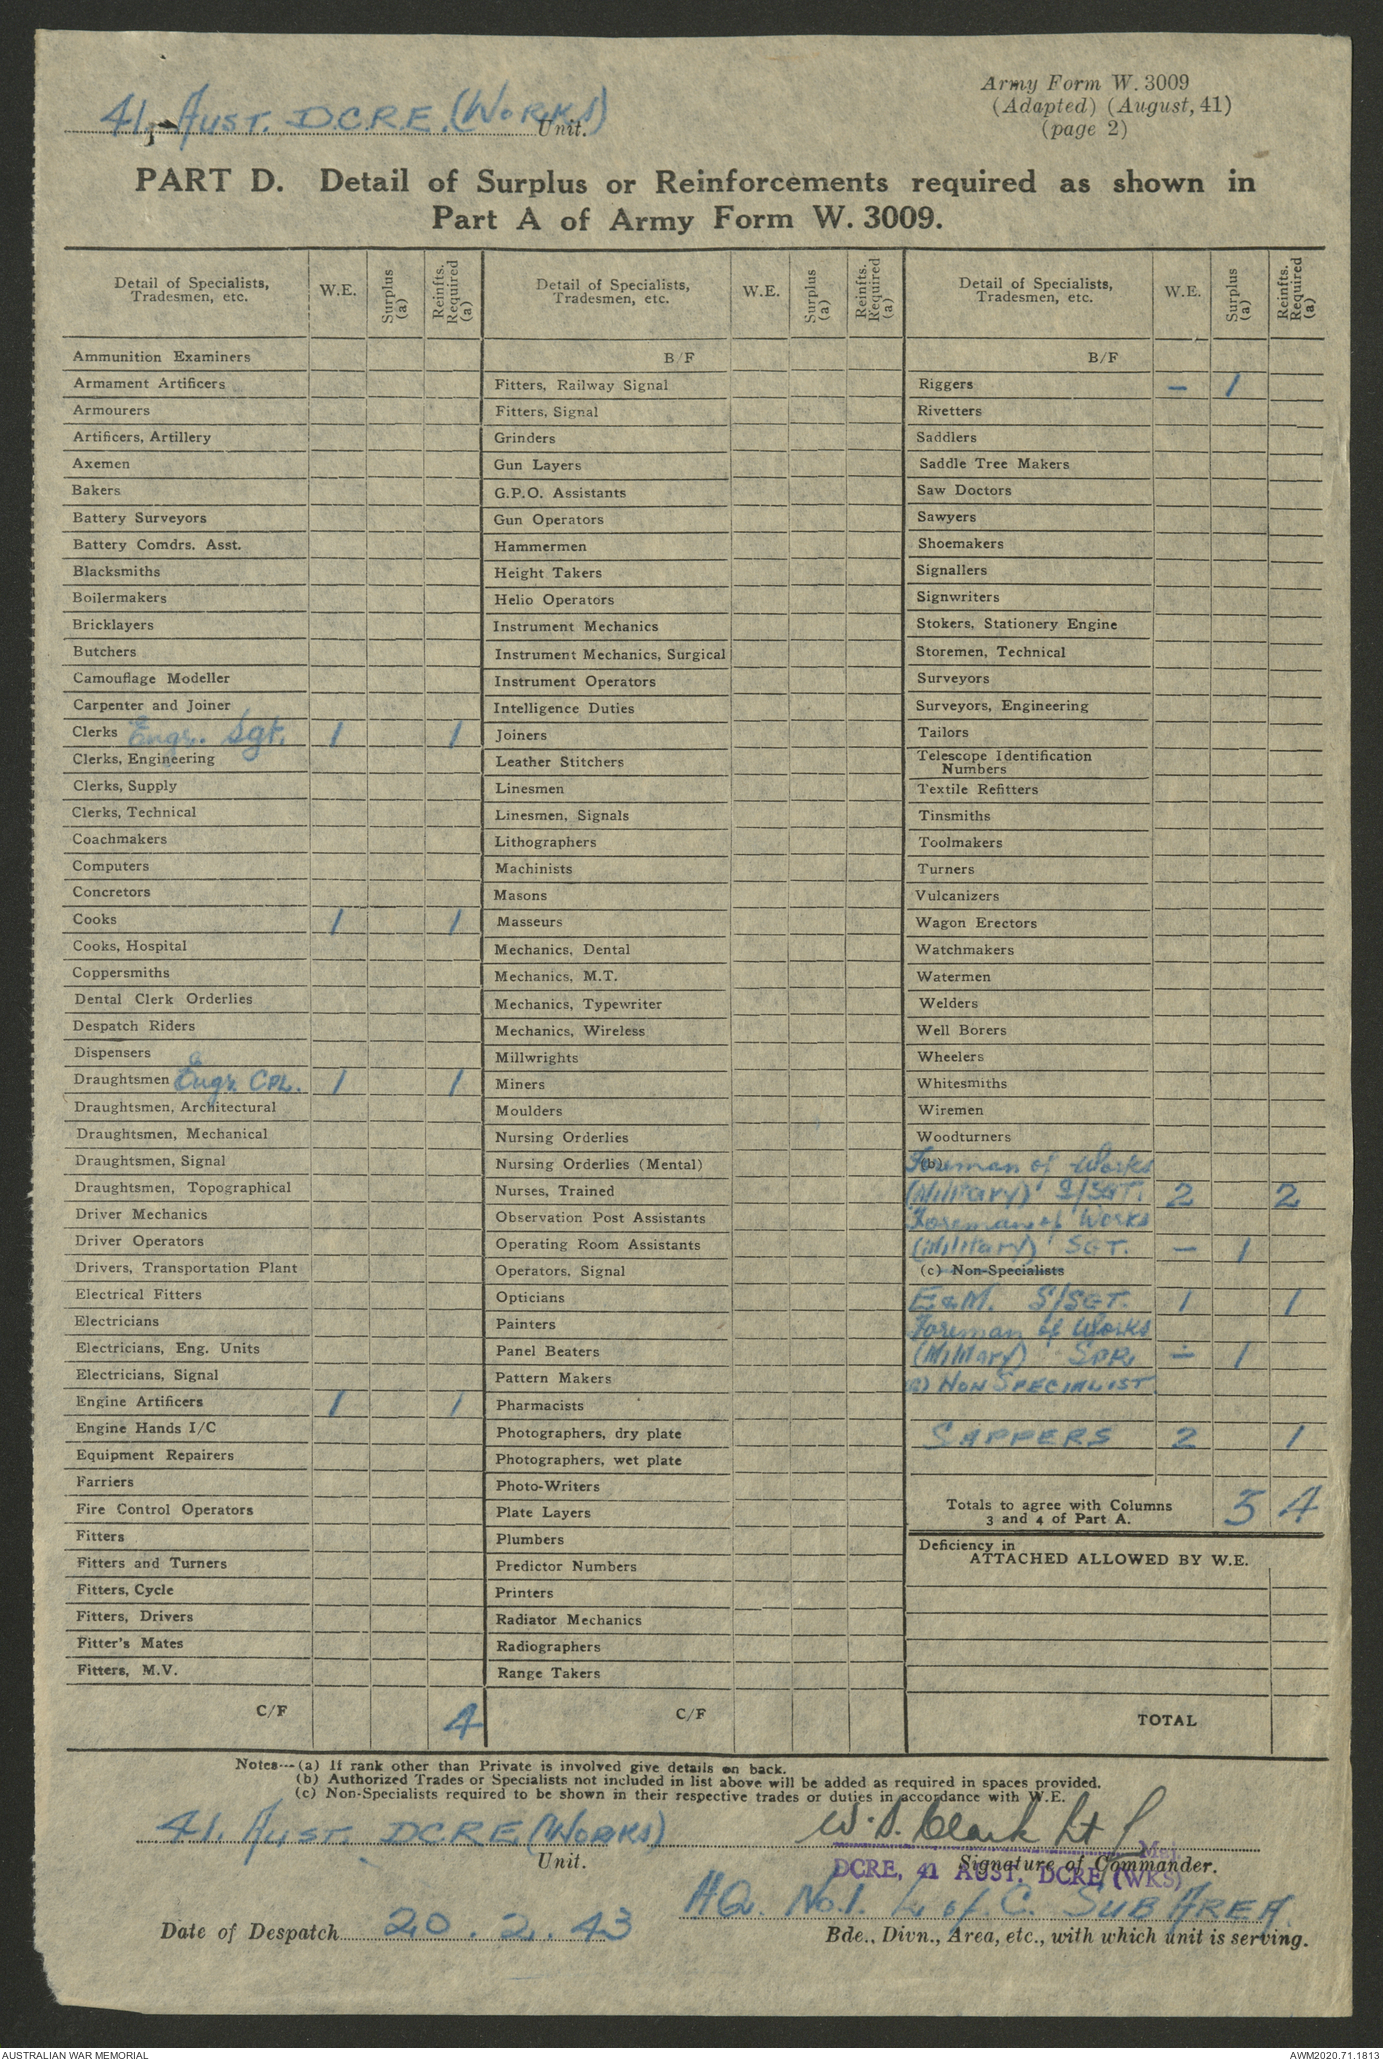 Army Form W. 3009
(Adapted) (August, 41)
(page 2)
41 Aust. D.C.R.E. (Works)
Unit.
PART D. Detail of Surplus or Reinforcements required as shown in
Part A of Army Form W. 3009.
Detail of Specialists, Tradesmen, etc. W.E. Surplus (a) Reinfts. Required (a)
Ammunition Examiners
Armament Artificers
Armourers
Artificers, Artillery
Axemen
Bakers
Battery Surveyors
Battery Comdrs. Asst.
Blacksmiths
Boilermakers
Bricklayers
Butchers
Camouflage Modeller
Carpenter and Joiner
Clerks Engr. Sgt. 1 1
Clerks, Engineering
Clerks, Supply
Clerks, Technical
Coachmakers
Computers
Concretors
Cooks 1 1
Cooks, Hospital
Coppersmiths
Dental Clerk Orderlies
Despatch Riders
Dispensers
Draughtsmen Engr. CPL. 1 1
Draughtsmen, Architectural
Draughtsmen, Mechanical
Draughtsmen, Signal
Draughtsmen, Topographical
Driver Mechanics
Driver Operators
Drivers, Transportation Plant
Electrical Fitters
Electricians
Electricians, Eng. Units
Electricians, Signal
Engine Artificers 1 1
Engine Hands I/C
Equipment Repairers
Farriers
Fire Control Operators
Fitters
Fitters and Turners
Fitters, Cycle
Fitters, Drivers
Fitter's Mates
Fitters, M.V.
C/F 4
Detail of Specialists, Tradesmen, etc. W.E. Surplus (a) Reinfts. Required (a)
B/F
Fitters, Railway Signal
Fitters, Signal
Grinders
Gun Layers
G.P.O. Assistants
Gun Operators
Hammermen
Height Takers
Helio Operators
Instrument Mechanics
Instrument Mechanics, Surgical
Instrument Operators
Intelligence Duties
Joiners
Leather Stitchers
Linesmen
Linesmen, Signals
Lithographers
Machinists
Masons
Masseurs
Mechanics, Dental
Mechanics, M.T.
Mechanics, Typewriter
Mechanics, Wireless
Millwrights
Miners
Moulders
Nursing Orderlies
Nursing Orderlies (Mental)
Nurses, Trained
Observation Post Assistants
Operating Room Assistants
Operators, Signal
Opticians
Painters
Panel Beaters
Pattern Makers
Pharmacists
Photographers, dry plate
Photographers, wet plate
Photo-Writers
Plate Layers
Plumbers
Predictor Numbers
Printers
Radiator Mechanics
Radiographers
Range Takers
C/F
Detail of Specialists, Tradesmen, etc. W.E. Surplus (a) Reinfts. Required (a)
B/F
Riggers - 1
Rivetters
Saddlers
Saddle Tree Makers
Saw Doctors
Sawyers
Shoemakers
Signallers
Signwriters
Stokers, Stationery Engine
Storemen, Technical
Surveyors
Surveyors, Engineering
Tailors
Telescope Identification
Numbers
Textile Refitters
Tinsmiths
Toolmakers
Turners
Vulcanizers
Wagon Erectors
Watchmakers
Watermen
Welders
Well Borers
Wheelers
Whitesmiths
Wiremen
Woodturners
(b) Foreman of Works
(Military) S/SGT. 2 2
Foreman of Works
(Military) SGT. - 1
(c) Non-Specialists
E&M. S/SGT. 1 1
Foreman of Works
(Military) SPR. - 1
(c) NON SPECIALIST
SAPPERS 2 1
Totals to agree with Columns
3 and 4 of Part A. 3 4
Deficiency in
ATTACHED ALLOWED BY W.E.
TOTAL
Notes---(a) If rank other than Private is involved give details on back.
(b) Authorized Trades or Specialists not included in list above will be added as required in spaces provided.
(c) Non-Specialists required to be shown in their respective trades or duties in accordance with W.E.
41. Aust. DCRE (Works)
Unit.
W. S. Clark Lt
Maj.
Signature of Commander.
DCRE, 41 AUST. DCRE, (WKS)
HQ. No.1. L of C. SUB AREA.
Date of Despatch 20.2.43
Bde., Divn., Area, etc., with which unit is serving.
AUSTRALIAN WAR MEMORIAL
AWM2020.71.1813